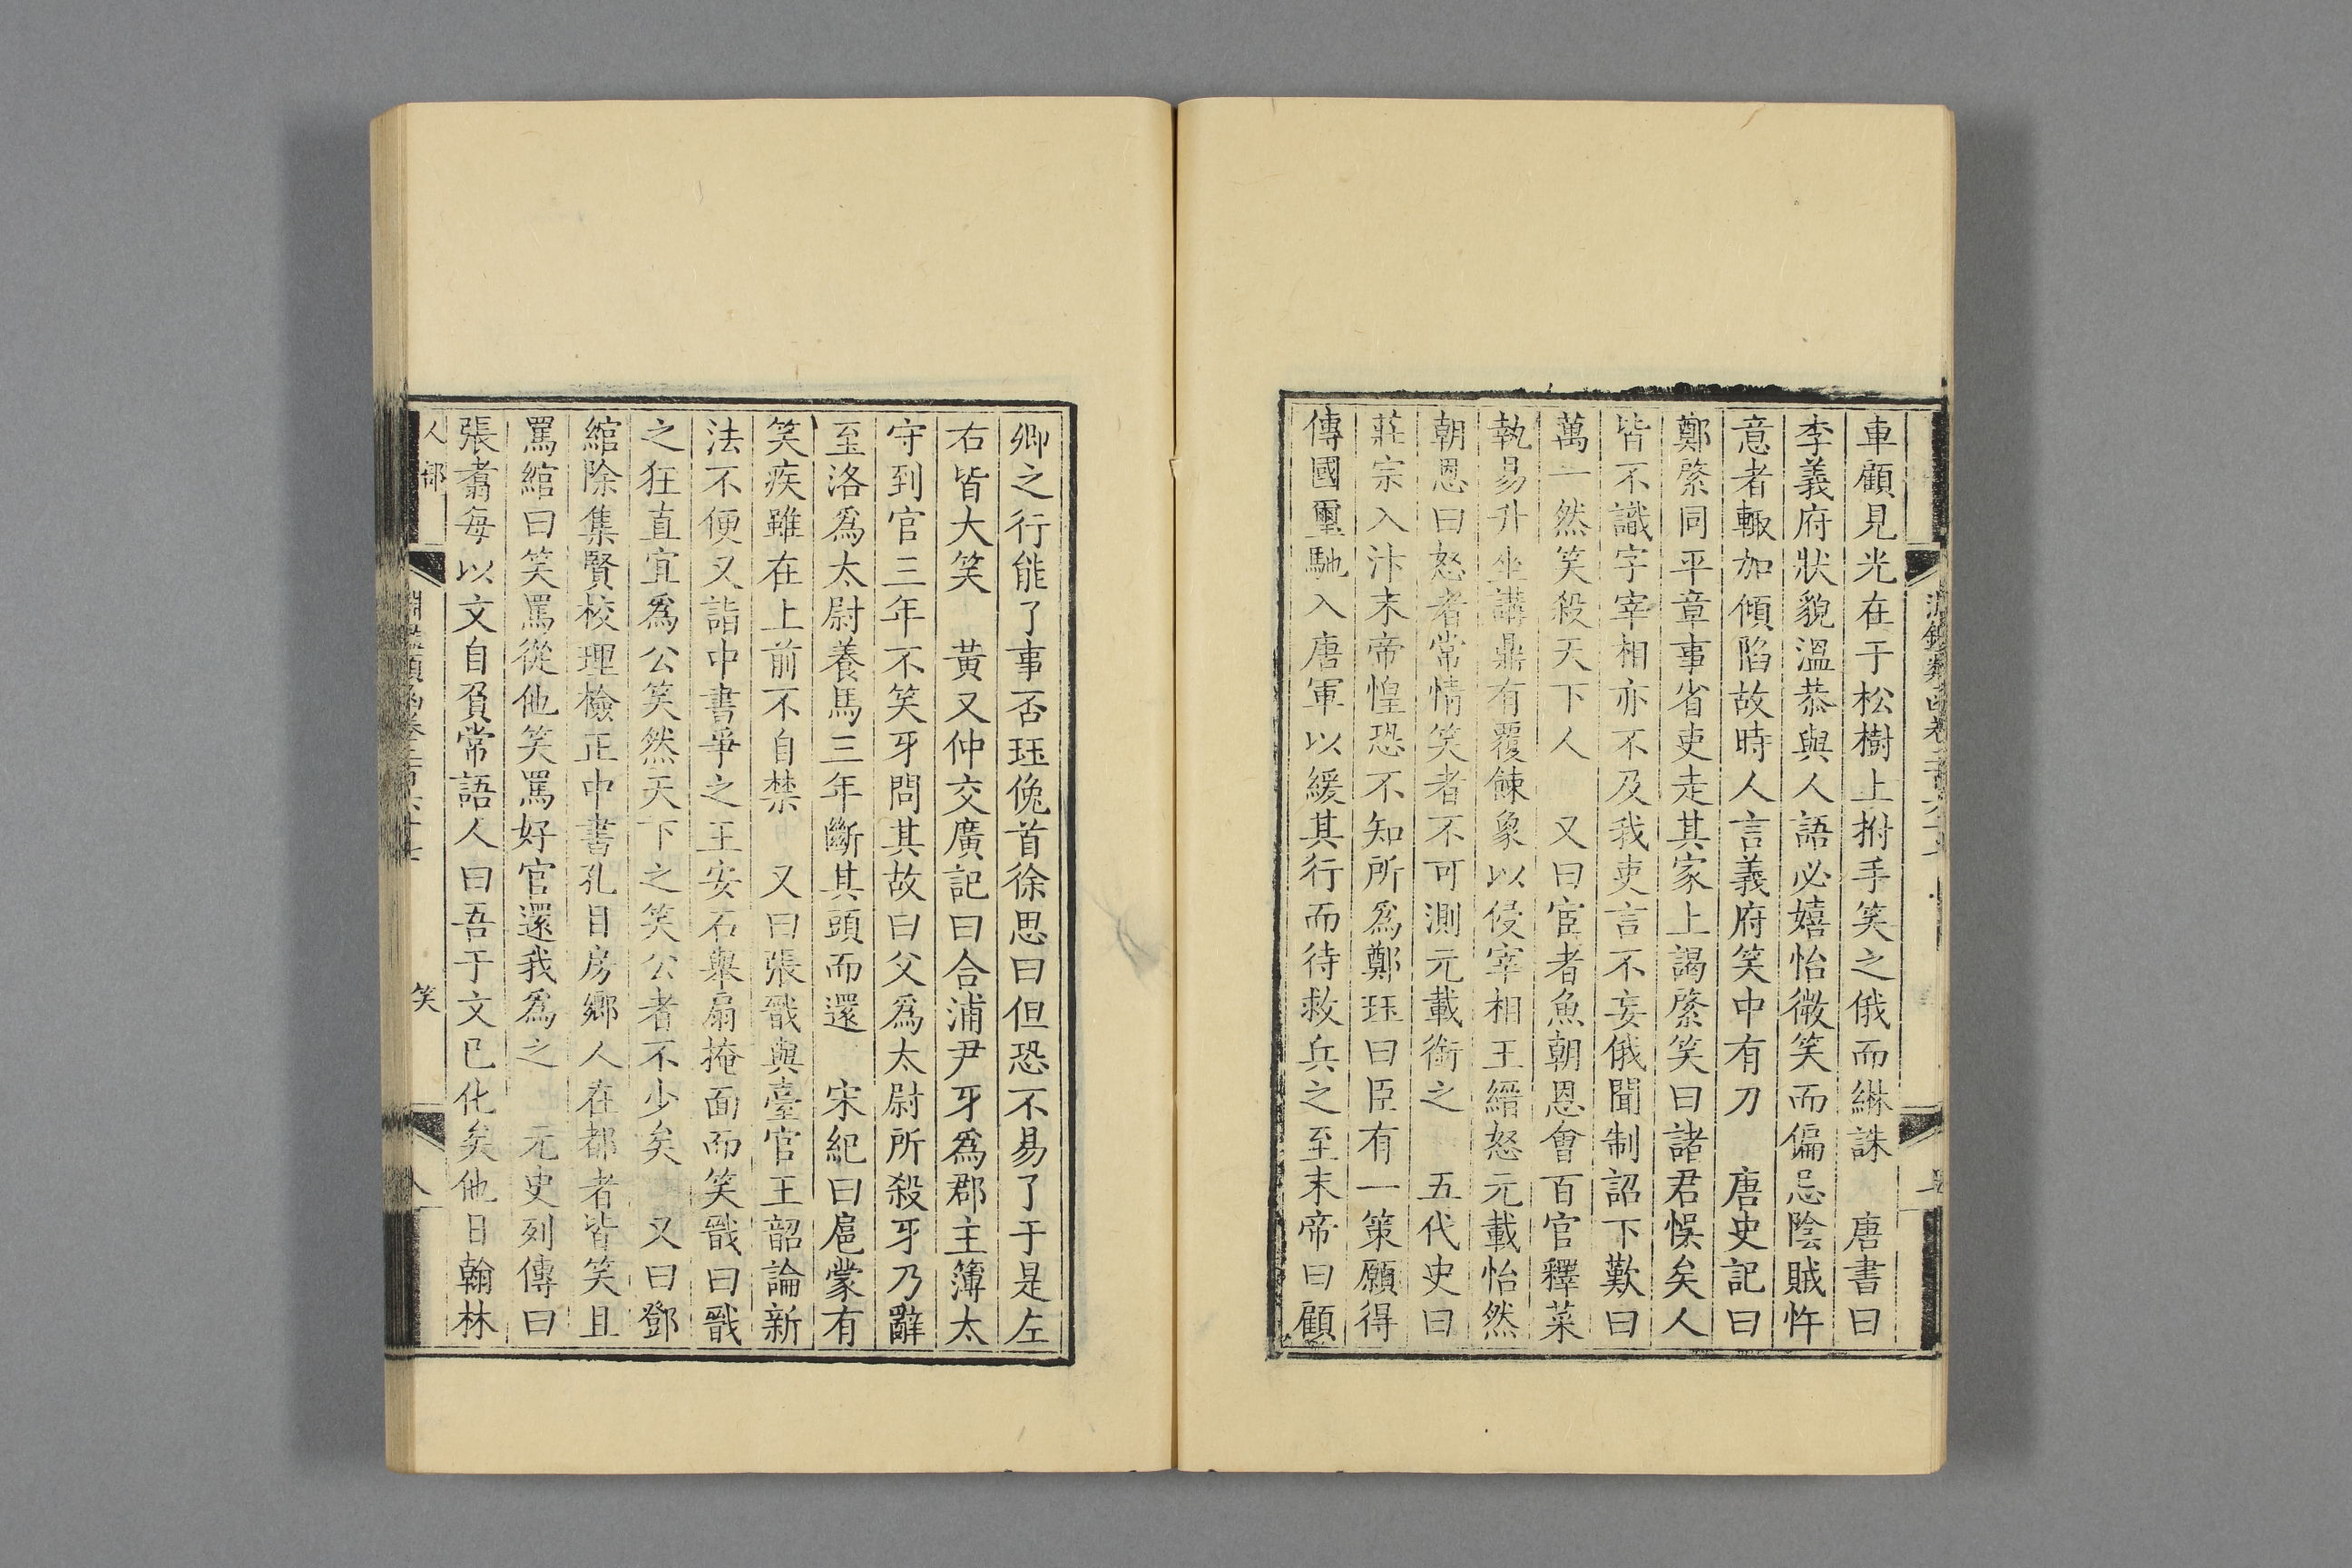 車顧見光在于松樹上拊手笑之俄而綝誅　唐書曰
李義府狀貌溫恭與人語必嬉怡微笑而偏忌陰賊忤
意者輙加傾陷故時人言義府笑中有刀　唐史記曰
鄭綮同平章事省吏走其家上謁綮笑曰諸君悞矣人
皆不識字宰相亦不及我吏言不妄俄聞制詔下歎曰
萬一然笑殺天下人　又曰宦者魚朝恩會百官釋菜
執易升坐講鼎有覆餗象以侵宰相王縉怒元載怡然
朝恩曰怒者常情笑者不可測元載銜之　五代史曰
莊宗入汴末帝惶恐不知所爲鄭珏曰臣有一策願得
傳國璽馳入唐軍以緩其行而待救兵之至末帝曰顧
卿之行能了事否珏俛首徐思曰但恐不易了于是左
右皆大笑　黃又仲交廣記曰合浦尹牙爲郡主簿太
守到官三年不笑牙問其故曰父爲太尉所殺牙乃辭
至洛爲太尉養馬三年斷其頭而還　宋紀曰扈蒙有
笑疾雖在上前不自禁　又曰張戩與臺官王韶論新
法不便又詣中書爭之王安石舉扇掩面而笑戩曰戩
之狂直宜爲公笑然天下之笑公者不少矣　又曰鄧
綰除集賢校理檢正中書孔目房鄉人在都者皆笑且
罵綰曰笑罵從他笑罵好官還我爲之　元史列傳曰
張翥每以文自負常語人曰吾于文已化矣他日翰林
人部
淵鑑類函卷
笑
八